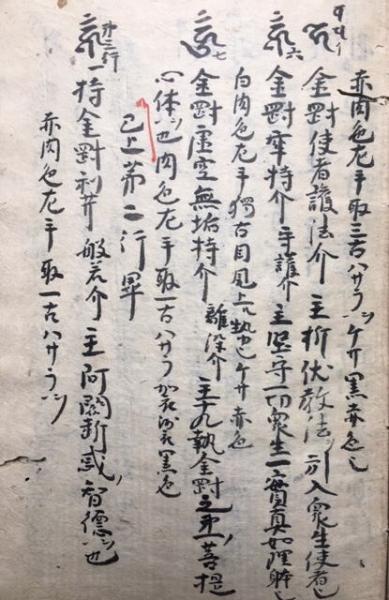 赤肉色左手取三古ハサラツ ケサ黒赤色也
金剛使者護法介 主折伏教法ツ 引入衆生使者也
六 金剛牢持介 守護介 主堅守一切衆生一實真如理躰也
白肉色左手獨古目風上ニ執也 ケサ赤色
七 金剛虚空無垢持介 離染介 主九執金剛之 菩提
心体ツ也 肉色左手取一古ハサラ 黒色
已上第二行畢
第三行 一 持金剛利井 般若介 主阿閦断惑 智德ツ也
赤肉色左手取一古ハサラツ